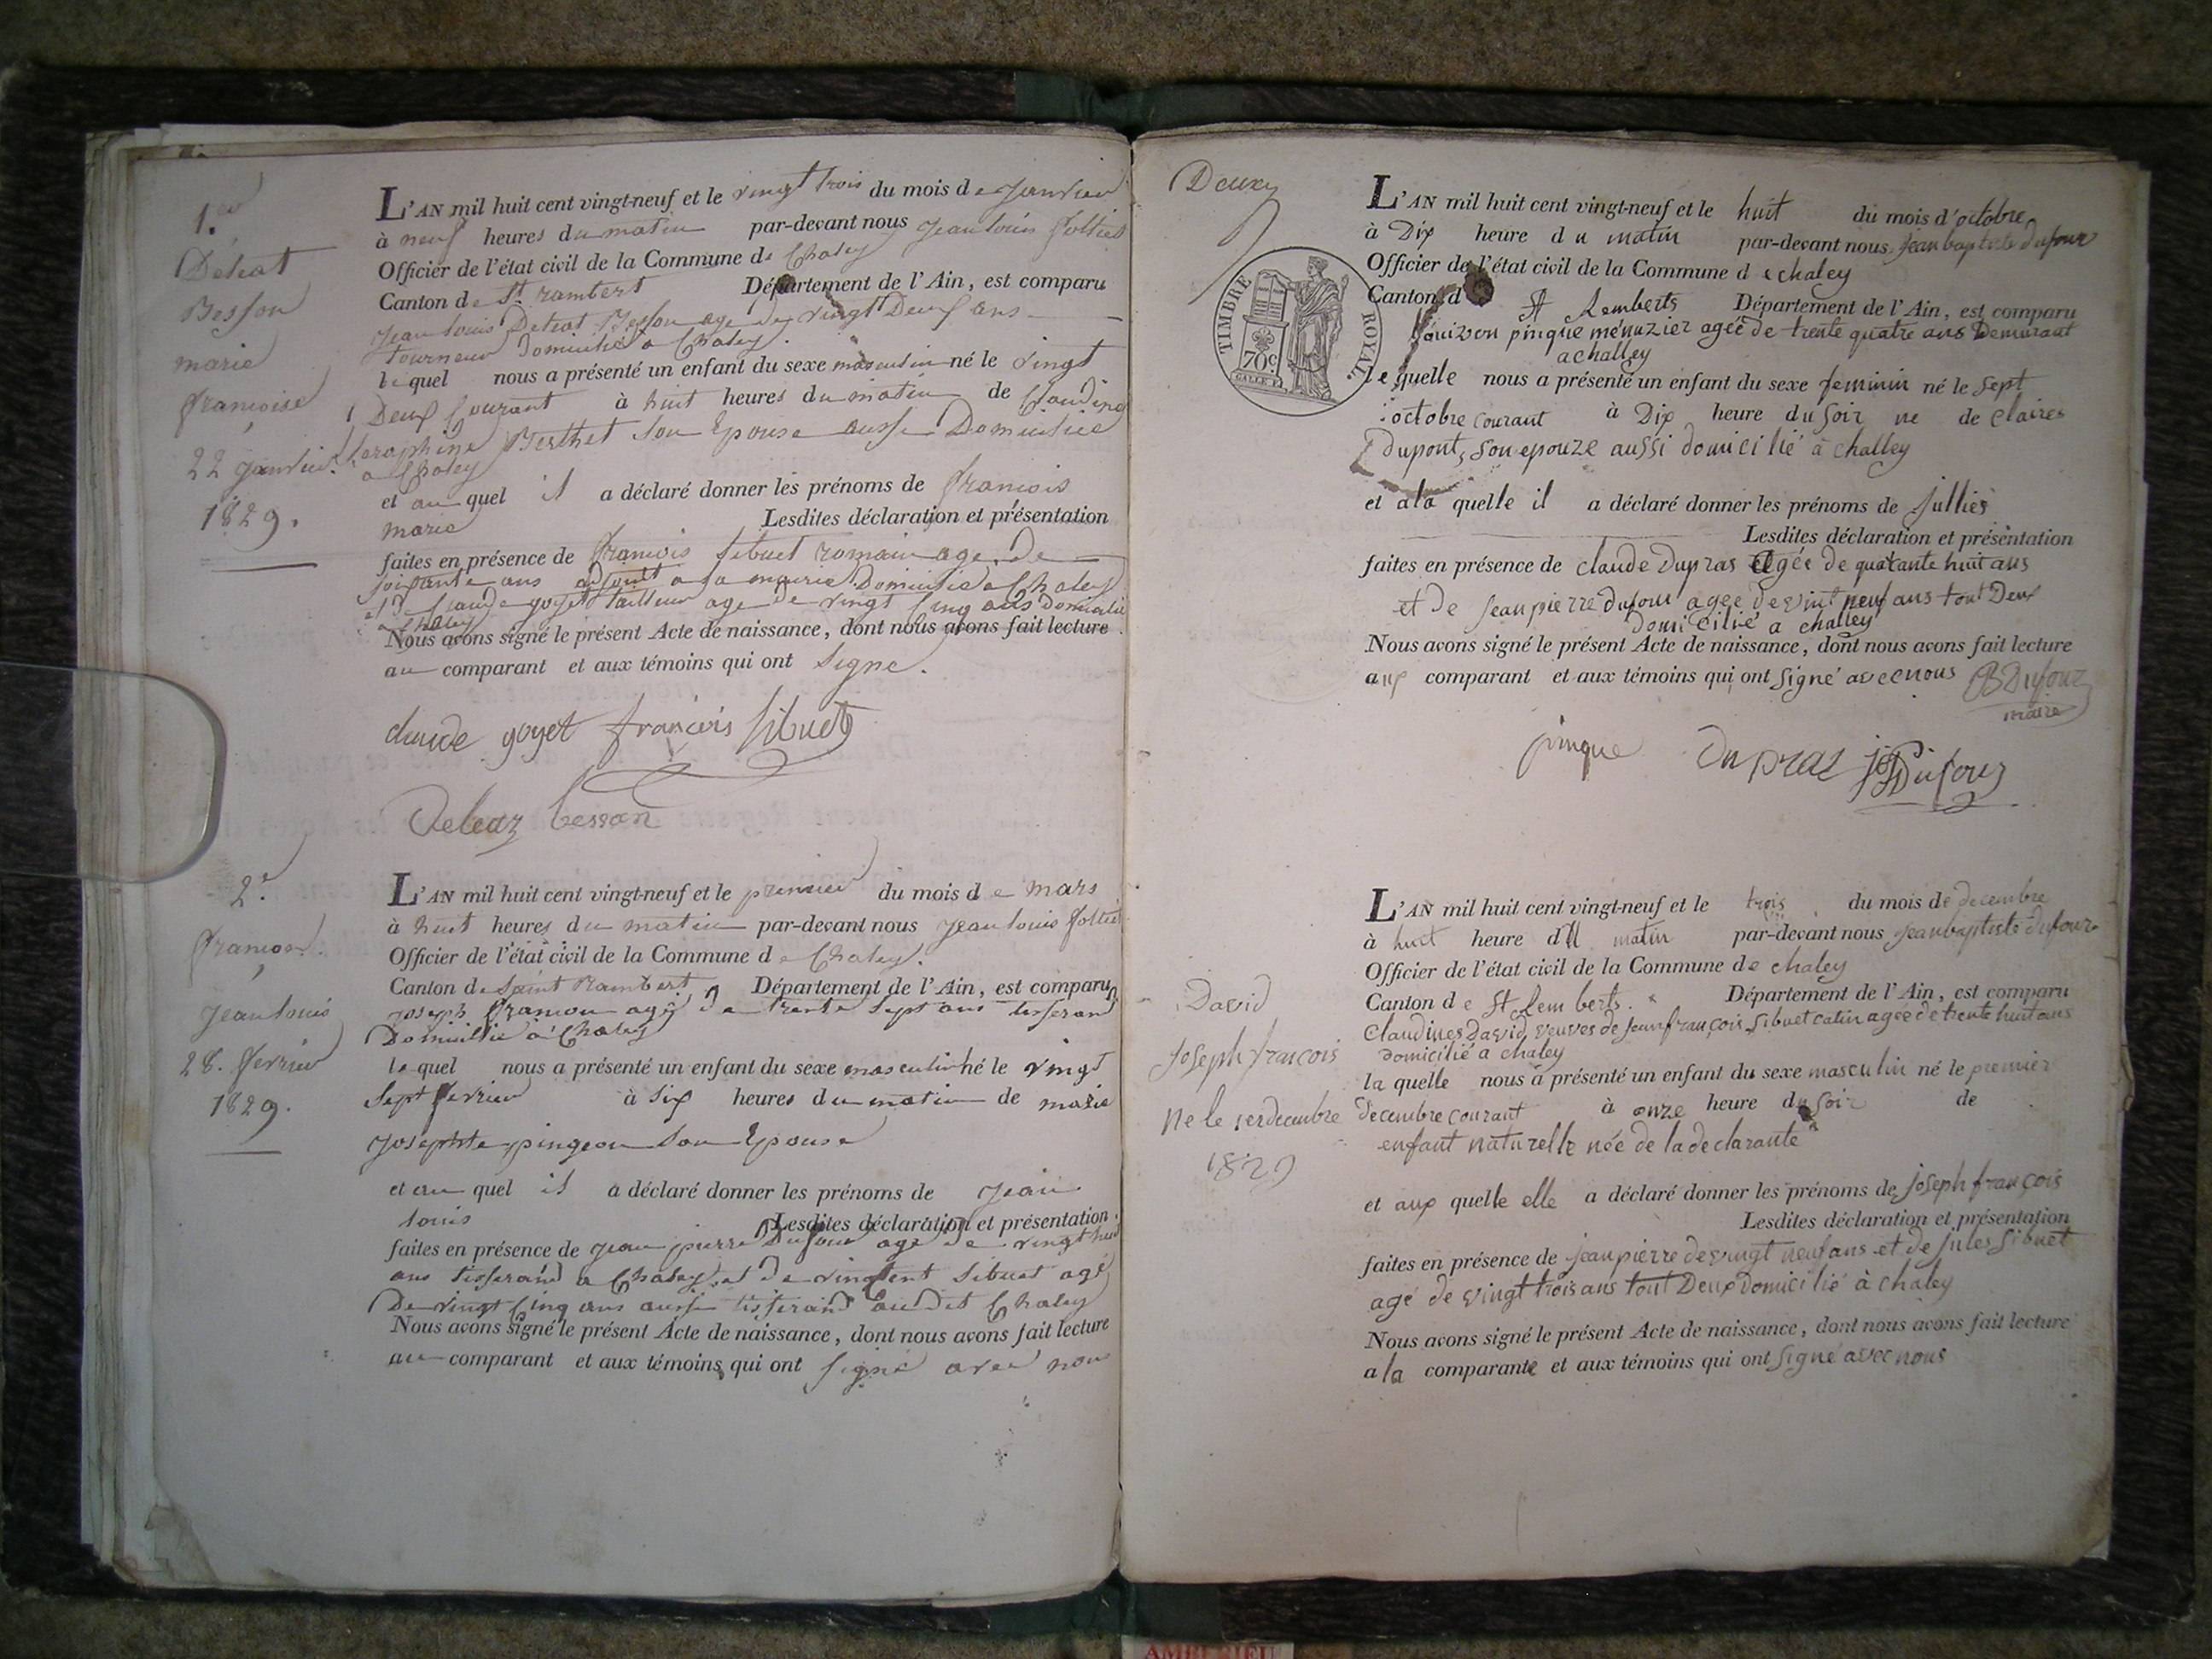 1.er
Deleat
Besson
marie
françoise
22 janvier
1829.
L'AN mil huit cent vingt-neuf et le vingt trois du mois de janvier
à neuf heures du matin par-devant nous jean louis
Officier de l'état civil de la Commune de Chaley
Canton de St rambert Département de l'Ain, est comparu
jean louis Deleat Besson age de vingt Deux ans
tourneur Domicilié a Chaley.
lequel nous a présenté un enfant du sexe masculin né le vingt
Deux Courant à huit heures du matin de Claudine
Seraphine Berthet Son Epouse aussi Domiciliée
a Chaley
et au quel il a déclaré donner les prénoms de françois
marie Lesdites déclaration et présentation
faites en présence de françois Sibuet romain age de
soixante ans adjoint a la mairie Domicilié a Chaley
et de Claude goyet tailleur age de vingt Cinq ans Domicilié
a Chaley
Nous avons signé le présent Acte de naissance, dont nous avons fait lecture
au comparant et aux témoins qui ont Signé.
claude goyet françois Sibuet
Deleaz besson
2.e
françon.
jean louis
28. fevrier
1829.
L'AN mil huit cent vingt-neuf et le premier du mois de mars
à huit heures du matin par-devant nous jean louis
Officier de l'état civil de la Commune de Chaley.
Canton de Saint Rambert Département de l'Ain, est comparu
joseph françon agé de trente Sept ans tisserand
Domicilié a Chaley
lequel nous a présenté un enfant du sexe masculin né le vingt
Sept fevrier à Six heures du matin de marie
josephte pingeon Son Epouse
et au quel il a déclaré donner les prénoms de jean
louis Lesdites déclaration et présentation
faites en présence de jean pierre Dufour agé de vingt huit
ans tisserand a Chaley et de vincent Sibuet agé
De vingt Cinq ans aussi tisserand audit Chaley
Nous avons signé le présent Acte de naissance, dont nous avons fait lecture
au comparant et aux témoins qui ont Signé avec nous
Deux
TIMBRE ROYAL.
70c.
L'AN mil huit cent vingt-neuf et le huit du mois d'octobre
à Dix heure du matin par-devant nous jean baptiste dufour
Officier de l'état civil de la Commune de chaley
Canton d St Remberts Département de l'Ain, est comparu
Louizon pinque ménuzier ageé de trente quatre ans Demurant
a challey
le quelle nous a présenté un enfant du sexe feminin né le sept
octobre courant à Dix heure du soir ne de claires
Dupont, son epouze aussi domicilié à challey
et a la quelle il a déclaré donner les prénoms de jullies
Lesdites déclaration et présentation
faites en présence de claude Dupras agée de quarante huit ans
et de jean pierre dufour agee de vint neuf ans tout Deux
domicilié a challey
Nous avons signé le présent Acte de naissance, dont nous avons fait lecture
aux comparant et aux témoins qui ont signé avec nous JB Dufour
maire
pinque Dupras jp Dufour
David
joseph francois
ne le 1er decembre
1829
L'AN mil huit cent vingt-neuf et le trois du mois de decembre
à huit heure du matin par-devant nous jean baptiste dufour
Officier de l'état civil de la Commune de chaley
Canton de St Remberts. Département de l'Ain, est comparu
Claudines David, veuves de jean françois Sibuet catin agee de trente huit ans
domicilié a chaley
la quelle nous a présenté un enfant du sexe masculin né le premier
decembre courant à onze heure du soir de
enfant naturelle née de la declarante
et aux quelle elle a déclaré donner les prénoms de joseph françois
Lesdites déclaration et présentation
faites en présence de jean pierre de vingt neuf ans et de jules Sibuet
agé de vingt trois ans tout Deux Domicilié à chaley
Nous avons signé le présent Acte de naissance, dont nous avons fait lecture
a la comparante et aux témoins qui ont signé avec nous